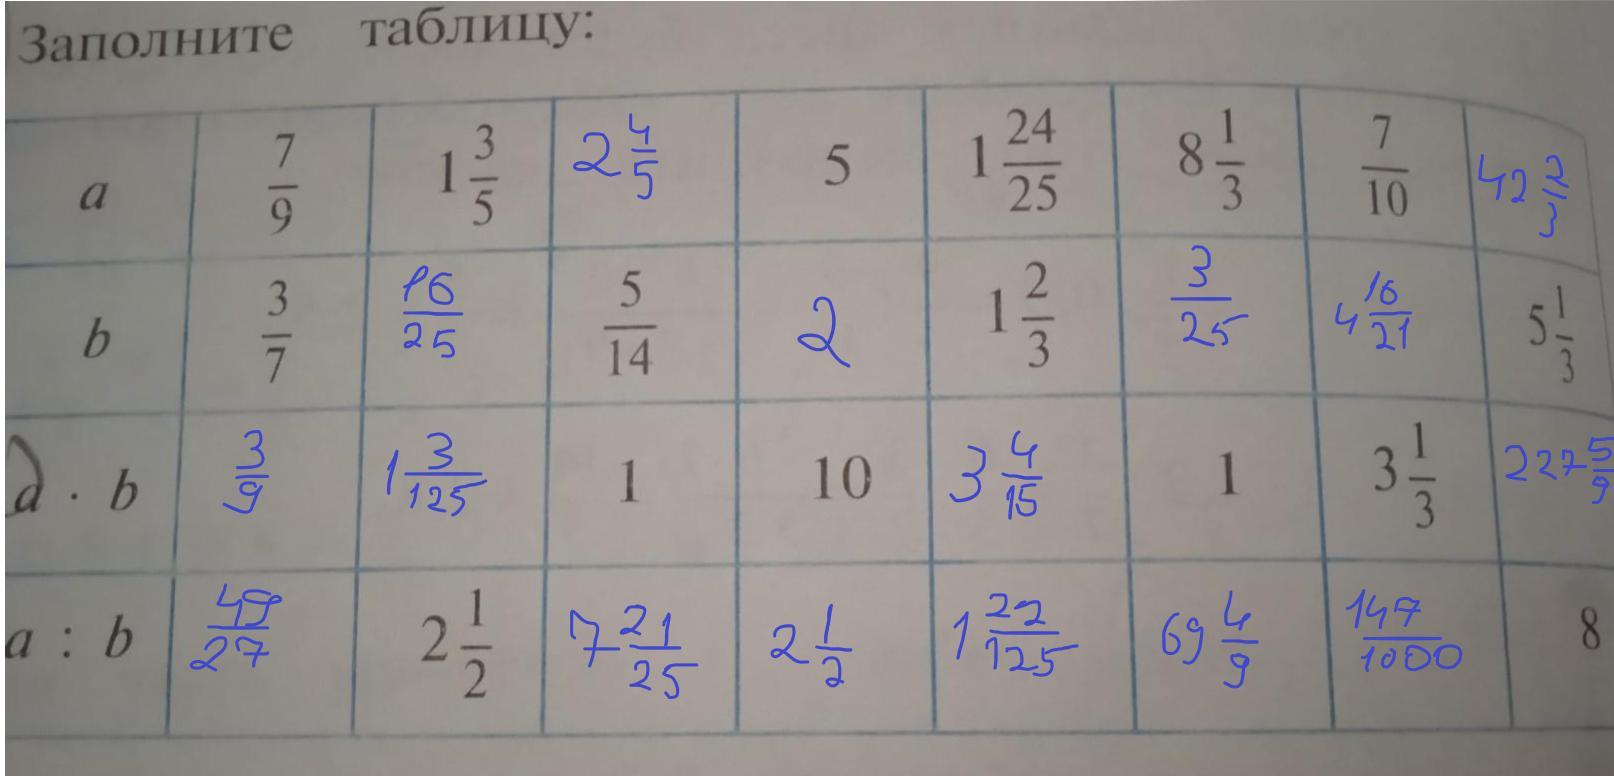 Заполните таблицу:
a 7/9 1 3/5 2 4/5 5 1 24/25 8 1/3 7/10 42 2/3
b 3/7 16/25 5/14 2 1 2/3 3/25 4 16/21 5 1/3
a · b 3/9 1 3/125 1 10 3 4/15 1 3 1/3 227 5/9
a : b 49/27 2 1/2 7 21/25 2 1/2 1 22/125 69 4/9 147/1000 8